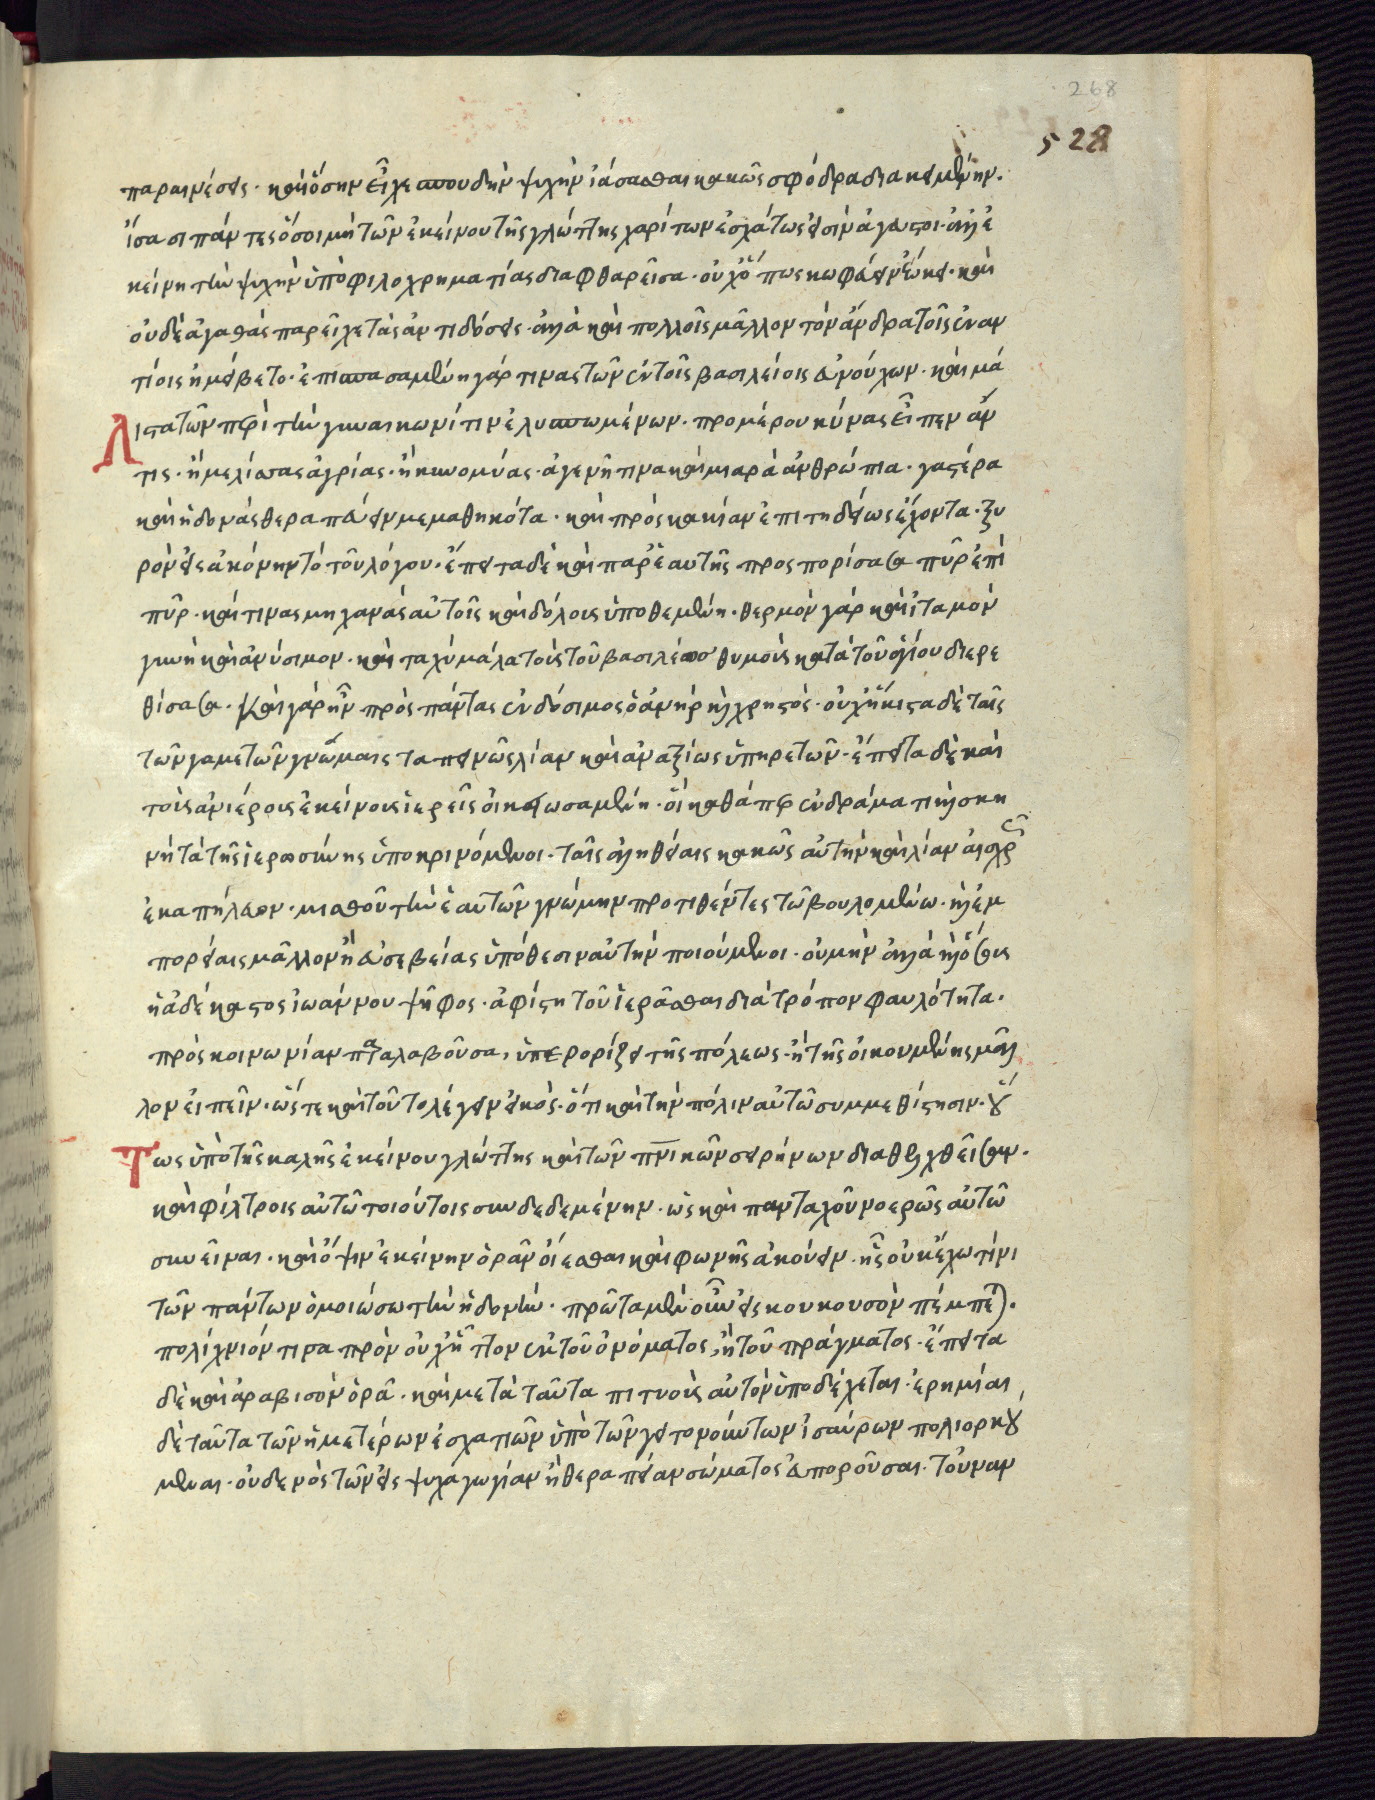 268
528
παραινέσεις · καὶ ὅσην εἶχε σπουδὴν ψυχὴν ἰάσασθαι κακῶς σφόδρα διακειμένην ·
ἴσασι πάντες ὅσοι μὴ τῶν ἐκείνου τῆς γλώττης χαρίτων ἐσχάτως εἰσὶν ἄγευστοι · ἀλλ' ἐ
κείνη τὴν ψυχὴν ὑπὸ φιλοχρηματίας διαφθαρεῖσα · οὐχ ὅπως κωφεύειν ἐώκει · καὶ
οὐδὲ ἀγαθὰς παρεῖχε τὰς ἀντιδόσεις · ἀλλὰ καὶ πολλοῖς μᾶλλον τὸν ἄνδρα τοῖς ἐναν
τίοις ἠμείβετο · ἐπισπασαμένη γάρ τινας τῶν ἐν τοῖς βασιλείοις εὐνούχων · καὶ μά
λιστα τῶν περὶ τὴν γυναικωνίτιν ἐλυττωμένων · προμέρου κύνας εἶπεν ἄν
τις · ἢ μελίσσας ἀγρίας · ἢ κυνομύας · ἀγενῆ τινα καὶ μιαρὰ ἀνθρώπια · γαστέρα
καὶ ἡδονὰς θεραπεύειν μεμαθηκότα · καὶ πρὸς κακίαν ἐπιτηδείως ἔχοντα · ξυ
ρὸν εἰς ἀκόνην τὸ τοῦ λόγου · ἔπειτα δὲ καὶ παρ' ἑαυτῆς προσπορίσασα πῦρ ἐπὶ
πῦρ · καί τινας μηχανὰς αὐτοῖς καὶ δόλους ὑποθεμένη · θερμὸν γὰρ καὶ ἰταμὸν
γυνὴ καὶ ἀνύσιμον · καὶ ταχὺ μάλα τοὺς τοῦ βασιλέως θυμοὺς κατὰ τοῦ ἁγίου διερε
θίσασα · καὶ γὰρ ἦν πρὸς πάντας ἐνδόσιμος ὁ ἀνὴρ καὶ χρηστός · οὐχ ἥκιστα δὲ ταῖς
τῶν γαμετῶν γνώμαις ταπεινῶς λίαν καὶ ἀναξίως ὑπηρετῶν · ἔπειτα δὲ καὶ
τοὺς ἀνιέρους ἐκείνους ἱερεῖς οἰκειωσαμένη · οἳ καθάπερ ἐν δράματι καὶ σκη
νῇ τὰ τῆς ἱερωσύνης ὑποκρινόμενοι · ταῖς ἀληθείαις κακῶς αὐτὴν καὶ λίαν αἰσχρῶς
ἐκαπήλευον · μισθοῦ τὴν ἑαυτῶν γνώμην προτιθέντες τῷ βουλομένῳ · καὶ ἐμ
πορείαις μᾶλλον ἢ εὐσεβείας ὑπόθεσιν αὐτὴν ποιούμενοι · οὐ μὴν ἀλλὰ καὶ ὅσαις
ἡ ἀδέκαστος ἰωάννου ψῆφος · ἀφίστη τοῦ ἱερᾶσθαι διὰ τρόπον φαυλότητα ·
πρὸς κοινωνίαν παραλαβοῦσα, ὑπερορίζει τῆς πόλεως · ἢ τῆς οἰκουμένης μᾶλ
λον εἰπεῖν · ὥστε καὶ τοῦτο λέγειν εἰκὸς · ὅτι καὶ τὴν πόλιν αὐτῷ συμμεθίστησιν · οὕ
τως ὑπὸ τῆς καλῆς ἐκείνου γλώττης καὶ τῶν πνικῶν σειρήνων διαθελχθεῖσαν ·
καὶ φίλτροις αὐτῷ τοιούτοις συνδεδεμένην · ὡς καὶ πανταχοῦ νοερῶς αὐτῷ
συνεῖναι · καὶ ὄψιν ἐκείνην ὁρᾶν οἴεσθαι καὶ φωνῆς ἀκούειν · ἧς οὐκ ἔχω τίνι
τῶν πάντων ὁμοιώσω τὴν ἡδονήν · πρῶτα μὲν οὖν εἰς κουκουσὸν πέμπεται ·
πολίχνιόν τινα πρὸν οὐχ ἧττον ἐκ τοῦ ὀνόματος, ἢ τοῦ πράγματος · ἔπειτα
δὲ καὶ ἀραβισὸν ὁρᾷ · καὶ μετὰ ταῦτα πιτυοὺς αὐτὸν ὑποδέχεται · ἐρημίαι
δὲ ταῦτα τῶν ἡμετέρων ἐσχατιῶν ὑπὸ τῶν γειτονούντων ἰσαύρων πολιορκού
μεναι · οὐδενὸς τῶν εἰς ψυχαγωγίαν ἢ θεραπείαν σώματος εὐποροῦσαι · τοὐναν